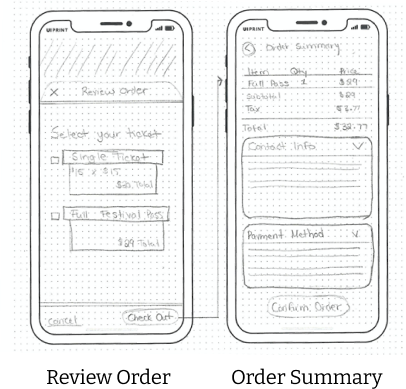 UIPRINT
X Review Order
Select your ticket
Single Ticket
$15 x $15
$30 Total
Full Festival Pass
$29 Total
Cancel
Check Out
UIPRINT
Order Summary
Item Qty Price
Full Pass 1 $29
Subtotal $29
Tax
Total $32.77
Contact Info
Payment Method
Confirm Order
Review Order
Order Summary